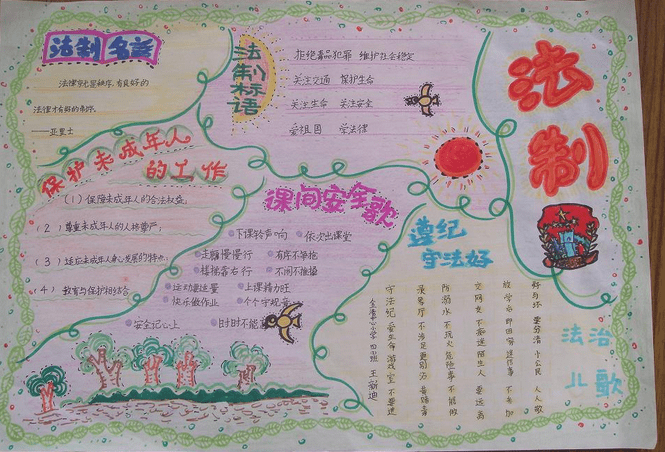 法制名言
法律就是秩序,有良好的
法律才有好的秩序.
——亚里士
法制标语
拒绝毒品犯罪 维护社会稳定
关注交通 保护生命
关注生命 关注安全
爱祖国 学法律
法制
保护未成年人
的工作
(1)保障未成年人的合法权益;
(2)尊重未成年人的人格尊严;
(3)适应未成年人身心发展的特点;
(4)教育与保护相结合.
课间安全歌
下课铃声响 依次出课堂
走廊慢慢行 有序不争抢
楼梯靠右行 不闹不推搡
运动要适量 上课精力旺
快乐做作业 个个守规章
安全记心上 时时不能忘
遵纪
守法好
法治
儿歌
好与坏 要分清 小公民 人人敬
放学后 即回家 送信事 不参加
交网友 不 陌生人 要远离
防溺水 不玩火 危险事 不能做
录像厅 不涉足 更别沾 黄赌毒
守法纪 爱生命 游戏室 不要进
小学 四班 王